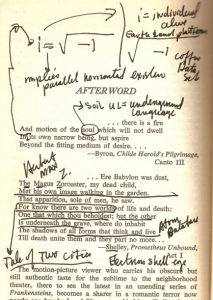 i = √-1
i = individual
alive
√-1
implies
parallel horizontal
AFTERWORD
soul UL = underground
language
. . . there is a fire
And motion of the soul which will not dwell
In its own narrow being, but aspire
Beyond the fitting medium of desire. . . .
—Byron, Childe Harold's Pilgrimage,
Canto III
. . . Ere Babylon was dust,
The Magus Zoroaster, my dead child,
Met his own image walking in the garden.
That apparition, sole of men, he saw.
For know there are two worlds of life and death:
One that which thou beholdest; but the other
Is underneath the grave, where do inhabit
The shadows of all forms that think and live
Till death unite them and they part no more. . . .
—Shelley, Prometheus Unbound,
Act 1
Tale of Two cities
Electron shell
The motion-picture viewer who carries his obscure but
still authentic taste for the sublime to the neighborhood
theater, there to see the latest in an unending series of
Frankensteins, becomes a sharer in a romantic terror now